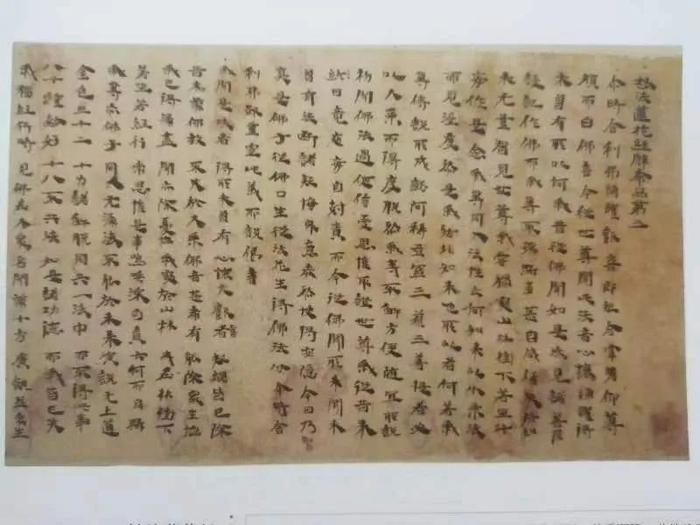 妙法蓮花經譬喻品第三
尒時舍利弗踊躍歡喜即起合掌瞻仰尊
顏而白佛言今從世尊聞此法音心懷踊躍得
未曾有所以何我昔從佛聞如是法見諸菩薩
授記作佛而我等不豫斯事甚自感傷失於如
來无量知見世尊我常獨處山林樹下若坐若行
每作是念我等同入法性云何如來以小乘法
而見濟度是我等咎非世尊也所以者何若我
等待說所因成就阿耨多羅三藐三菩提者必
以大乘而得度脫然我等不解方便隨宜所說
初聞佛法遇便信受思惟取證世尊我從昔來
終日竟夜每自剋責而今從佛聞所未聞未
曾有法斷諸疑悔身意泰然快得安隱今日乃知
真是佛子從佛口生從法化生得佛法分尒時舍
利弗欲重宣此義而說偈言
我聞是法音 得所未曾有 心懷大歡喜 疑網皆已除
昔來蒙佛教 不失於大乘 佛音甚希有 能除眾生惱
我已得漏盡 聞亦除憂惱 我處於山林 或在林樹下
若坐若經行 常思惟是事 嗚呼深自責 云何而自欺
我等亦佛子 同入无漏法 不能於未來 演說无上道
金色三十二 十力諸解脫 同共一法中 而不得此事
八十種妙好 十八不共法 如是等功德 而我皆已失
我獨經行時 見佛在大眾 名聞滿十方 廣饒益眾生